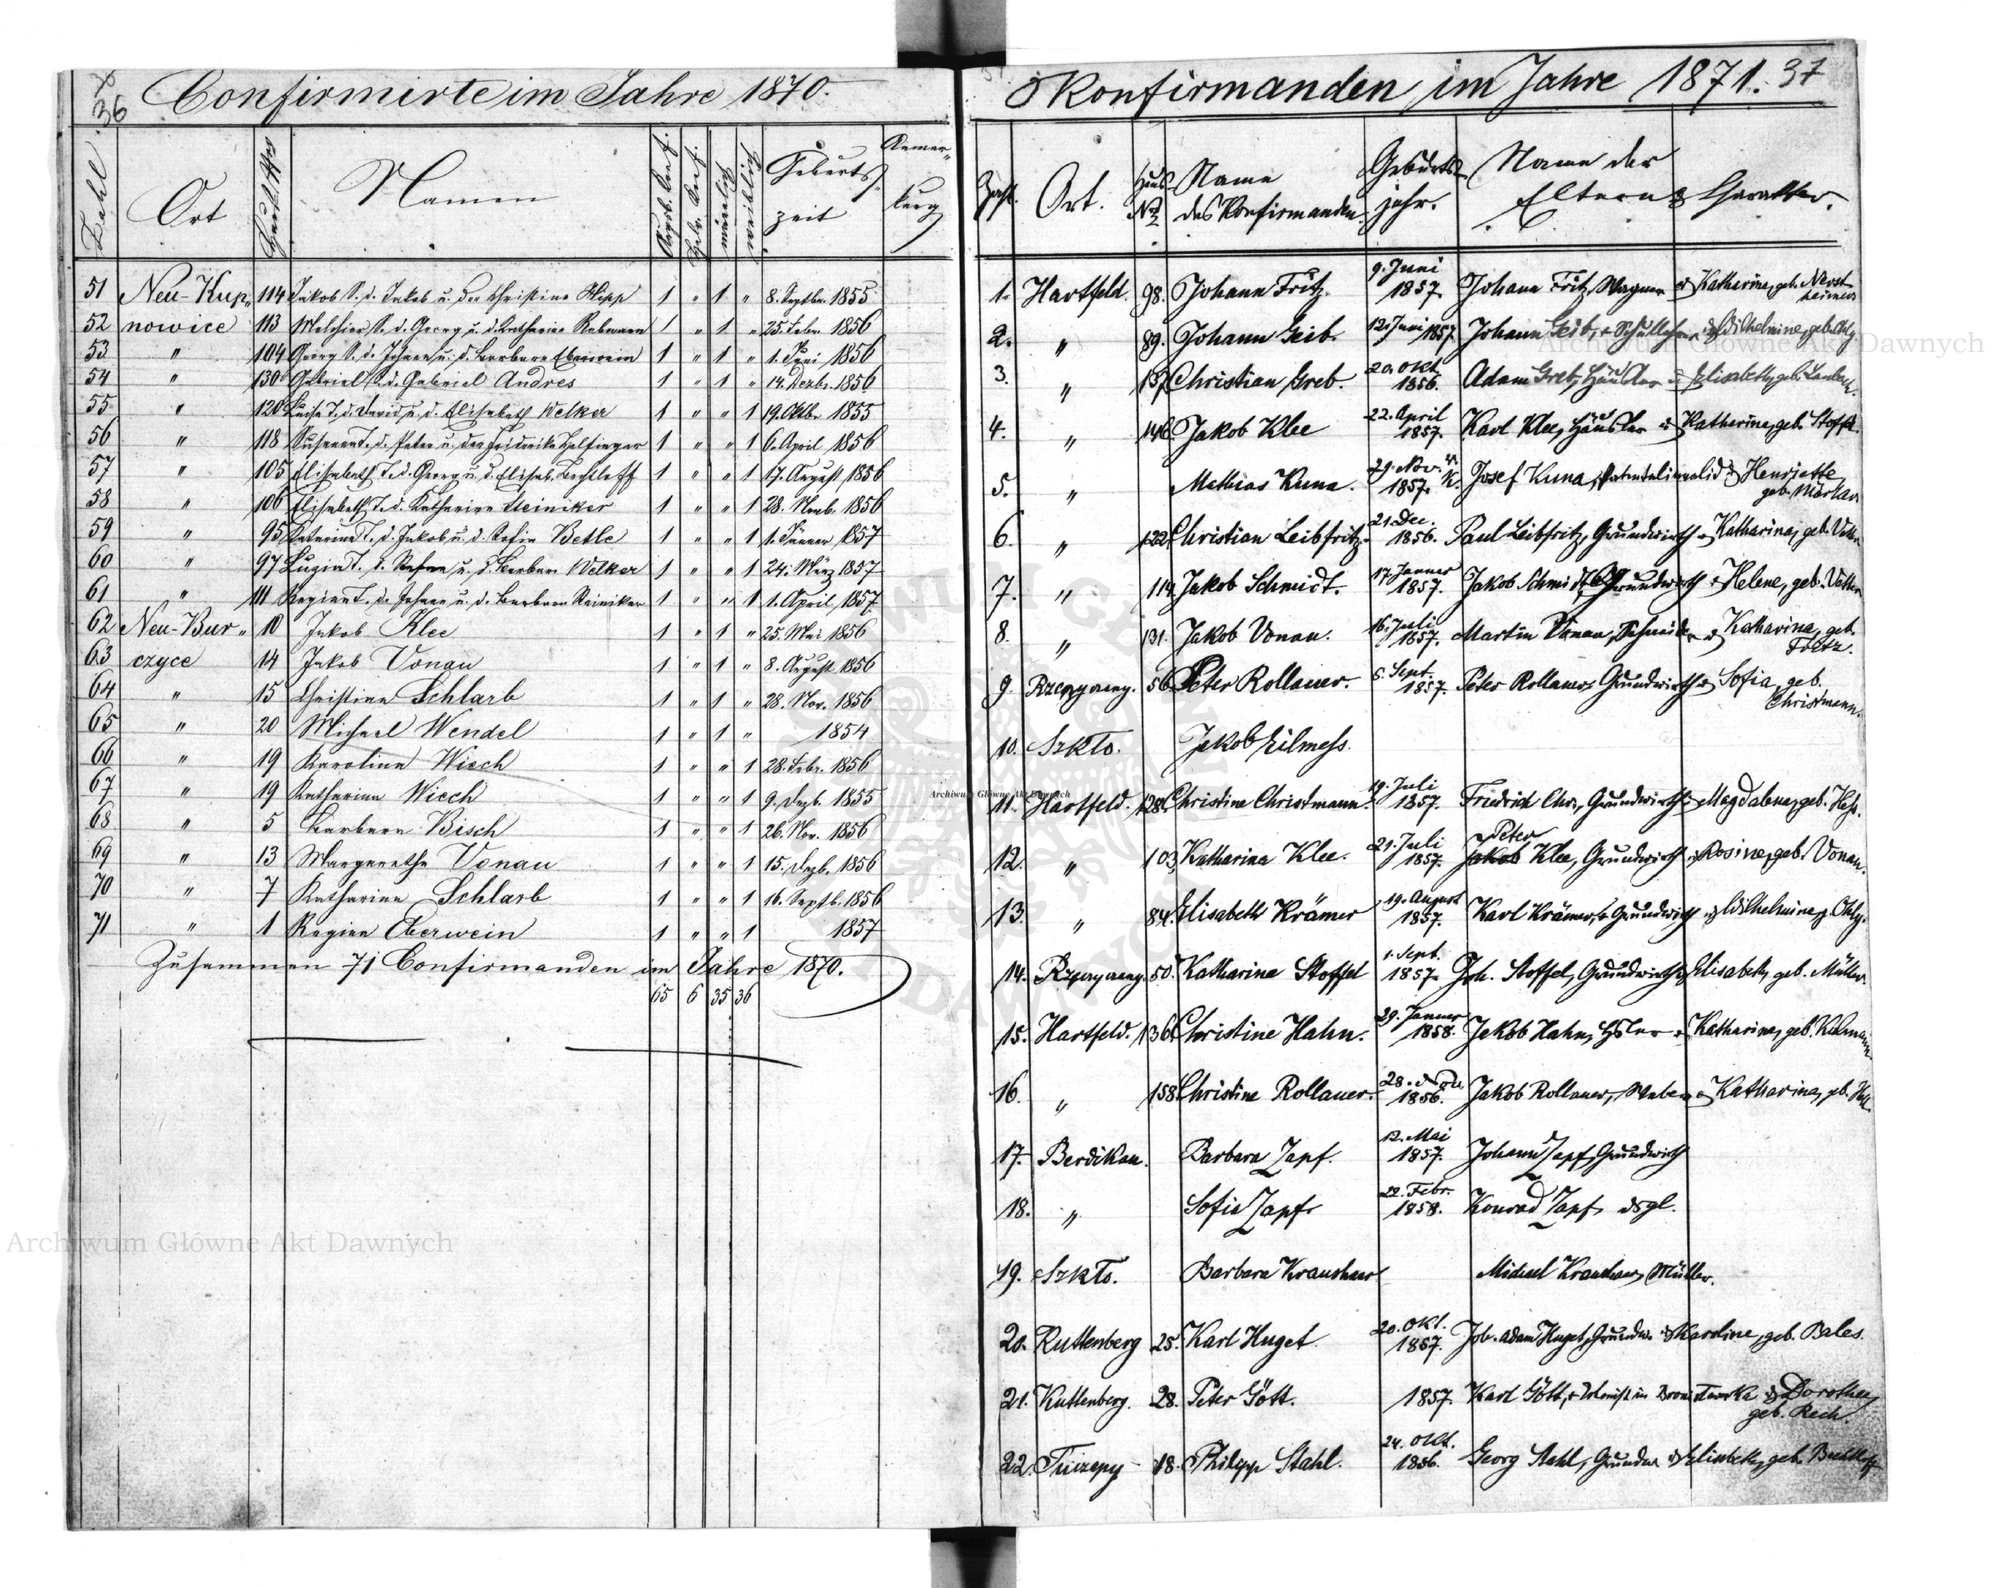 36
Confirmirte im Jahre 1870.
Zahl Ort Haus No Namen Augsb. Conf. Helv. Conf. männlich weiblich Geburts-zeit Bemer-kung
51 Neu-Kup- 114 Jakob S. d. Jakob u. der Christine Hipp 1 " 1 " 8. Septbr. 1855
52 nowice 113 Melchior S. d. Georg u. d. Katharine Rebmann 1 " 1 " 25. Febr. 1856
53 " 104 Georg S. d. Johann u. d. Barbara Eberwein 1 " 1 " 1. Juni 1856
54 " 130 Gabriel S. d. Gabriel Andres 1 " 1 " 14. Dezbr. 1856
55 " 120 Luise T. d. David u. d. Elisabeth Welker 1 " " 1 19. Oktbr. 1855
56 " 118 Susanna T. d. Peter u. der Friderike 1 " " 1 6. April 1856
57 " 105 Elisabeth T. d. Georg u. d. Elisab. Bechtloff 1 " " 1 17. August 1856
58 " 106 Elisabeth T. d. Katharina Reiniker 1 " " 1 28. Novb. 1856
59 " 95 T. d. Jakob u. d. Sofie Betle 1 " " 1 1. Jänner 1857
60 " 97 T. d. u. d. Barbara Welker 1 " " 1 24. März 1857
61 " 111 Regina T. d. Johann u. d. Barbara Reiniker 1 " " 1 1. April 1857
62 Neu-Bur- 10 Jakob Klee 1 " 1 " 25. Mai 1856
63 czyce 14 Jakob Vonau 1 " 1 " 8. August 1856
64 " 15 Christian Schlarb 1 " 1 " 28. Nov. 1856
65 " 20 Michael Wendel 1 " 1 " 1854
66 " 19 Karolina Wiech 1 " " 1 28. Febr. 1856
67 " 19 Katharina Wiech 1 " " 1 9. Dezb. 1855
68 " 5 Barbara Bisch 1 " " 1 26. Nov. 1856
69 " 13 Margaretha Vonau 1 " " 1 15. Dezb. 1856
70 " 7 Katharina Schlarb 1 " " 1 16. Septb. 1856
71 " 1 Regina Eberwein 1 " " 1 1857
Zusammen 71 Confirmanden im Jahre 1870.
65 6 35 36
Konfirmanden im Jahre 1871. 37
Zahl. Ort. Haus No Name des Konfirmanden. Geburts-jahr. Name der Eltern & Charakter.
1. Hartfeld. 98. Johann Fritz 9. Juni 1857. Johann Fritz, Wagner & Katharina, geb.
2. " 89. Johann Geib. 12. Juni 1857. Johann Geib, + Schullehrer & Wilhelmine, geb. Ohly.
3. " 137 Christian Greb. 20. Okt. 1856. Adam Greb, Häusler & Elisabeth, geb. Laubach.
4. " 146 Jakob Klee 22. April 1857. Karl Klee, Häusler & Katharine, geb. Stoffel.
5. " Mathias Kuna. 29. Nov. 1857. Josef Kuna, Patentalinvalid & Henriette geb.
6. " 122. Christian Leibfritz. 21. Dec. 1856. Paul Leibfritz, Grundwirth & Katharina, geb. Vetter
7. " 114. Jakob Schmidt. 17. Jänner 1857. Jakob Schmidt, Grundwirth & Helene, geb. Vetter
8. " 131. Jakob Vonau. 16. Juli 1857. Martin Vonau, Schneider & Katharina, geb. Fritz.
9. Rzeczyczany. 56. Peter Rollauer. 5. Sept. 1857. Peter Rollauer, Grundwirth & Sofia, geb. Christmann.
10. Szkło. Jakob Hilmess.
11. Hartfeld. 128. Christine Christmann. 19. Juli 1857. Friedrich Chr., Grundwirth & Magdalena, geb. Heß.
12. " 103. Katharina Klee. 21. Juli 1857. Jakob Peter Klee, Grundwirth & Rosine, geb. Vonau.
13. " 84. Elisabeth Krämer 19. August 1857. Karl Krämer, + Grundwirth & Wilhelmina, g. Ohly.
14. Rzeczyczany. 50. Katharine Stoffel 1. Sept. 1857. Joh. Stoffel, Grundwirth & Elisabeth, geb. Müller.
15. Hartfeld. 136. Christine Hahn. 29. Jänner 1858. Jakob Hahn, Hsler & Katharina, geb.
16. " 158. Christine Rollauer. 28. 1856. Jakob Rollauer, Weber & Katharina, geb.
17. Berdikau. Barbara Zapf. 12. Mai 1857. Johann Zapf, Grundwirth
18. " Sofia Zapf. 22. Febr. 1858. Konrad Zapf, dsgl.
19. Szkło. Barbara Kraushaar Michael Kraushaar, Müller.
20. Kuttenberg 25. Karl Huget 20. Okt. 1857. Joh. Adam Huget, Grundw. & Karoline, geb. Bales.
21. Kuttenberg. 28. Peter Gött. 1857. Karl Gött, + Kolonist in & Dorothea, geb. Rech.
22. 18. Philipp Stahl. 24. Okt. 1856. Georg Stahl, Grundw. & Elisabeth, geb. Bechtloff
Archiwum Główne Akt Dawnych
Archiwum Główne Akt Dawnych
Archiwum Główne Akt Dawnych